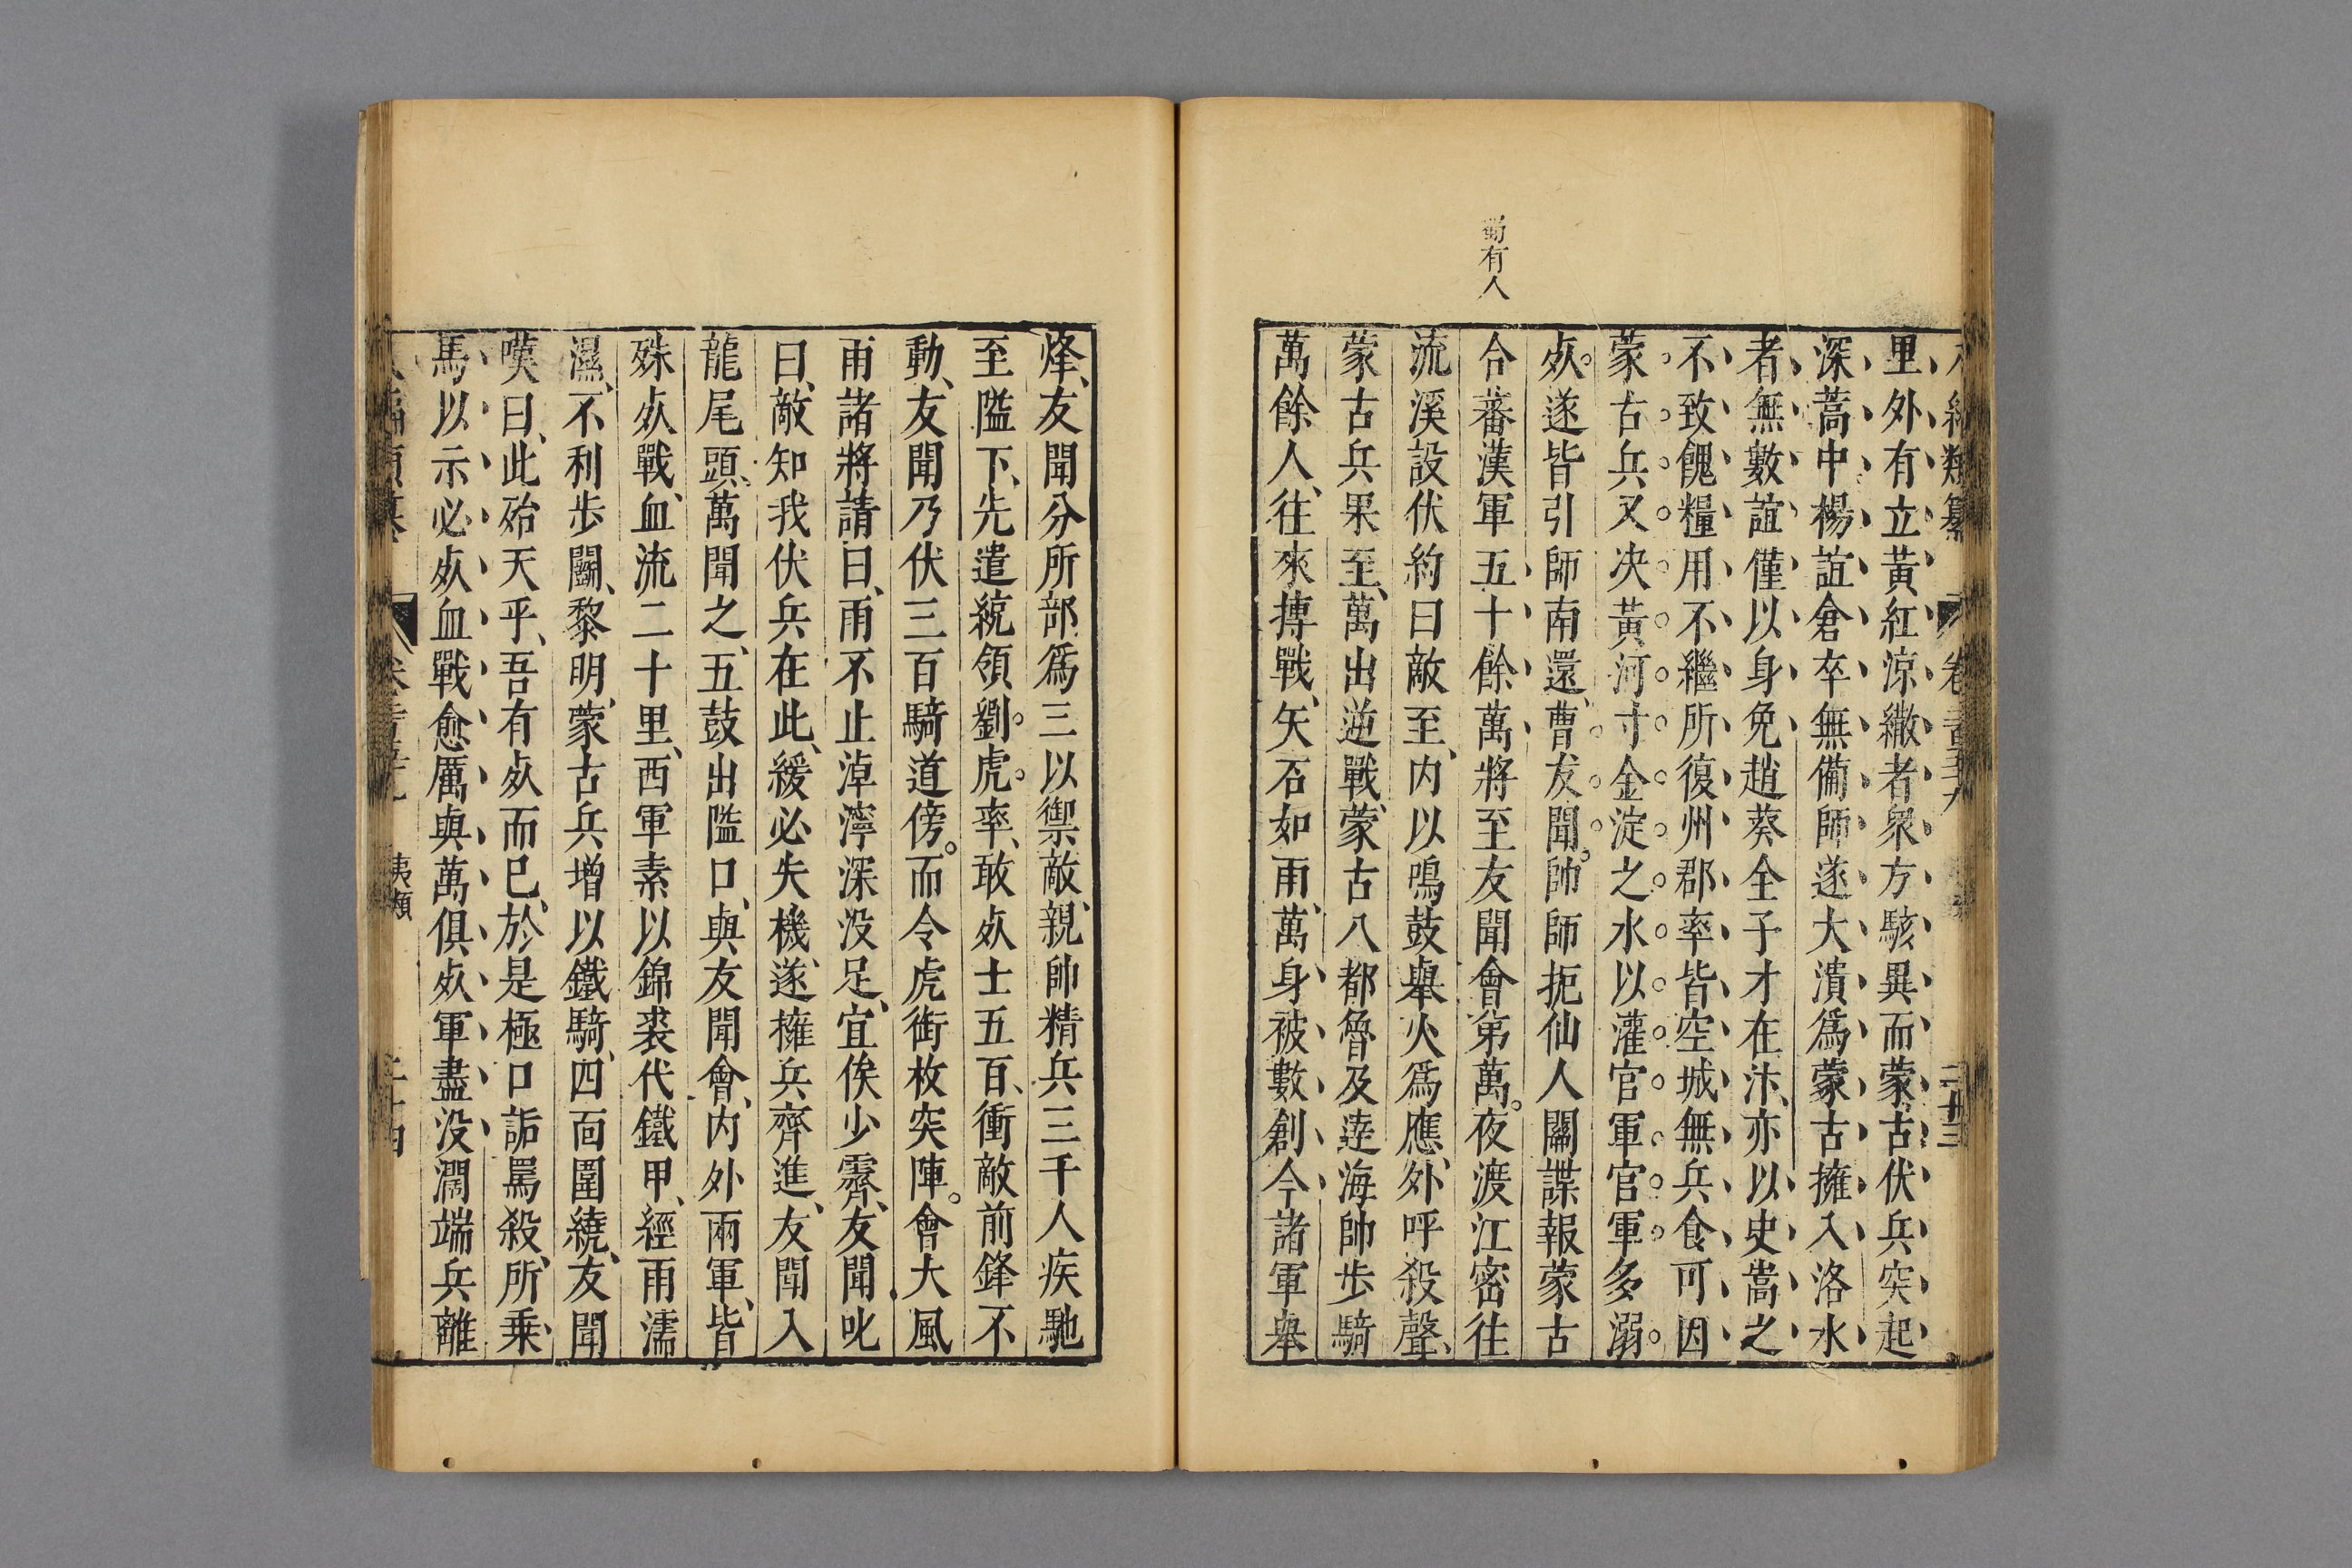 八編類纂 卷 二十三
蜀有人
里外有立黃紅涼繖者衆方駭異而蒙古伏兵突起
深蒿中楊誼倉卒無備師遂大潰爲蒙古擁入洛水
者無數誼僅以身免趙葵全子才在汴亦以史嵩之
不致餽糧用不繼所復州郡率皆空城無兵食可因
蒙古兵又决黃河寸金淀之水以灌官軍官軍多溺
死遂皆引師南還曹友聞帥師扼仙人關諜報蒙古
合蕃漢軍五十餘萬將至友聞會第萬夜渡江密往
流溪設伏約曰敵至内以鳴鼓舉火爲應外呼殺聲
蒙古兵果至萬出逆戰蒙古八都魯及達海帥步騎
萬餘人往來搏戰矢石如雨萬身被數創今諸軍舉
烽友聞分所部爲三以禦敵親帥精兵三千人疾馳
至隘下先遣統領劉虎率敢死士五百衝敵前鋒不
動友聞乃伏三百騎道傍而令虎銜枚突陣會大風
雨諸將請曰雨不止淖濘深没足宜俟少霽友聞叱
曰敵知我伏兵在此緩必失機遂擁兵齊進友聞入
龍尾頭萬聞之五鼓出隘口與友聞會内外兩軍皆
殊死戰血流二十里西軍素以錦裘代鐵甲經雨濡
濕不利步鬭黎明蒙古兵增以鐵騎四面圍繞友聞
嘆曰此殆天乎吾有死而已於是極口詬罵殺所乘
馬以示必死血戰愈厲與萬俱死軍盡没濶端兵離
夷類 二十四